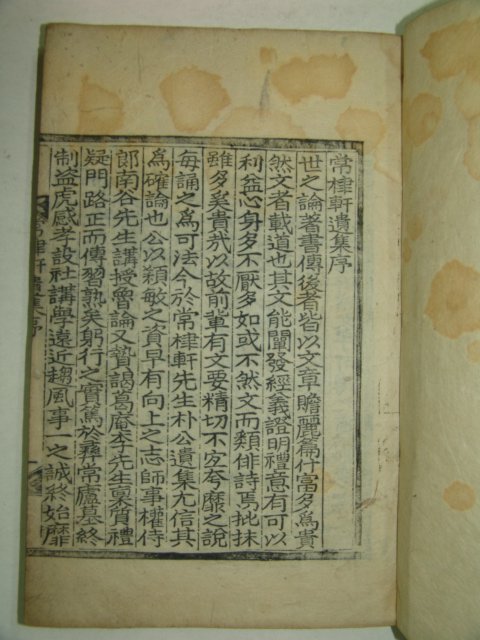 常棣軒遺集序
世之論著書傳後者皆以文章贍麗篇什富多爲貴
然文者載道也其文能闡發經義證明禮意有可以
利益心身多不厭多如或不然文而類俳詩焉批抹
雖多奚貴哉以故前輩有文要精切不宐夸靡之說
每誦之爲可法今於常棣軒先生朴公遺集尤信其
爲確論也公以穎敏之資早有向上之志師事權侍
郎南谷先生講授魯論又贄謁葛庵李先生稟質禮
疑門路正而傳習熟矣躬行之實篤於彛常廬墓終
制益虎感孝設社講學遠近趨風事一之誠終始靡
常棣軒遺集序